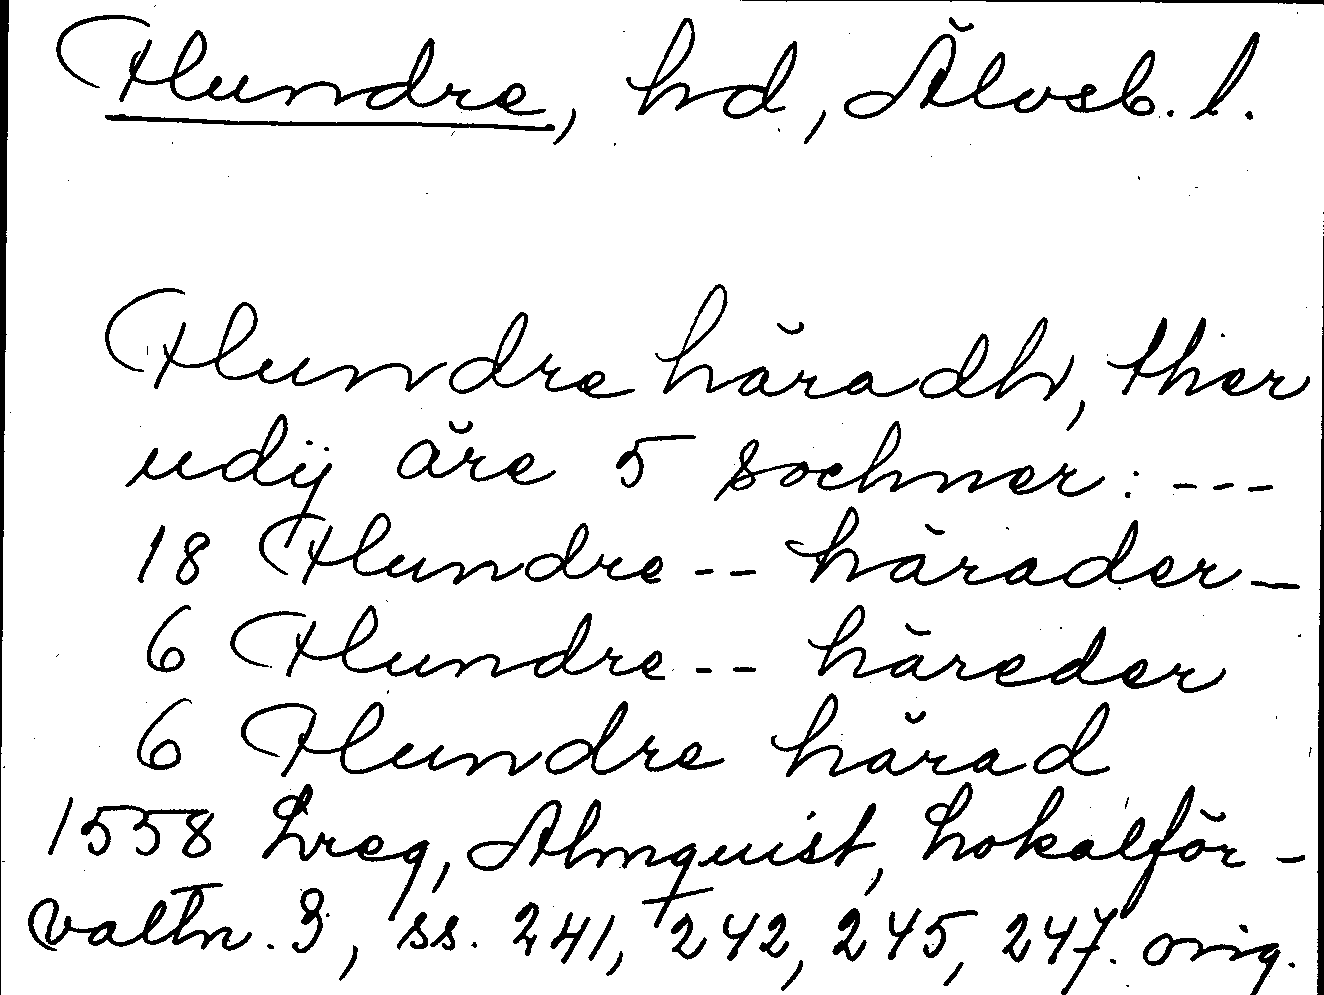 Hundre, hd, Älvsb. l.
Hundre häradh, ther
udij äre 5 sochner: ---
18 Hundre -- härader –
6 Hundre -- häreder
6 Hundre härad
1558 Lreg, Almquist, Lokalför-
valtn. 3, ss. 241, 242, 245, 247. orig.